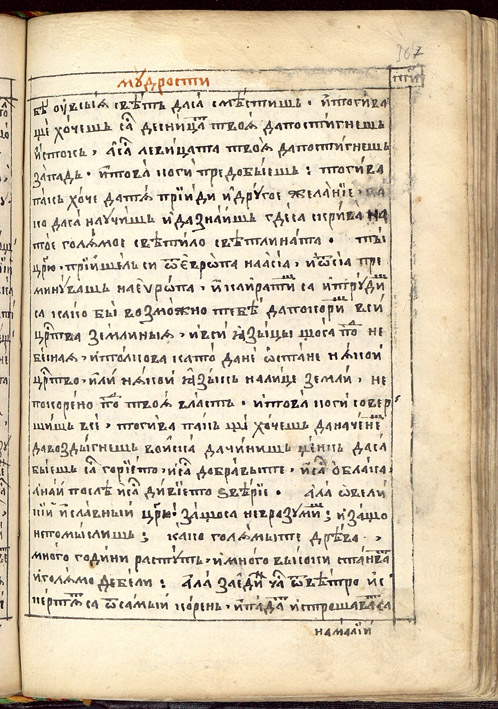 167
мꙋдрости
бѣ оу всыѧ свѣтъ да са смѣстишъ · и тогива
ще хочешъ са десница твоѧ да постигнешъ
истокъ, а са левицата твоѧ да постигнешъ
западъ · и това коги предобыешъ : тогива
пакъ хоче да тѧ прїйди и другое желанїе, ка
ко да са научишъ и да знаишъ где са скрива на
тое голѧмое свѣтило свѣтлината · ты
црю, пришелъ си ѿ еѵропа на асїа, и ѿ сїа пре
минувашъ на еѵропа, и каратиш са и трудиш
са како бы возможно тебѣ да покориш вси
цртва землныѧ, и вси ꙗзыцы що са по не
беснаѧ, и толкова като да не ѡстане нѧкой
цртво, или нѧкой ꙗзыкъ на лице земли, не
покорено по твоѧ власть · и това коги совер
шишъ всѣ, тогива пакъ ще хочешъ да начене
да воздыгнешъ войска да чинишъ ценкъ да са
быешъ са горїето, и са добравыте, и са облака
а най послѣ и са дивїето ѕвѣрїе · ала ѡ вели
кїй и славный црю защо са не вразумиш ; и защо
не помыслишъ ; како голѧмыте дрѣва,
много години растутъ, и много высоки станват
и голѧмо дебели : ала за един ча ѿ вѣтро ис
кертѧ са ѿ самый корень, и падат и строшават са
на малїи